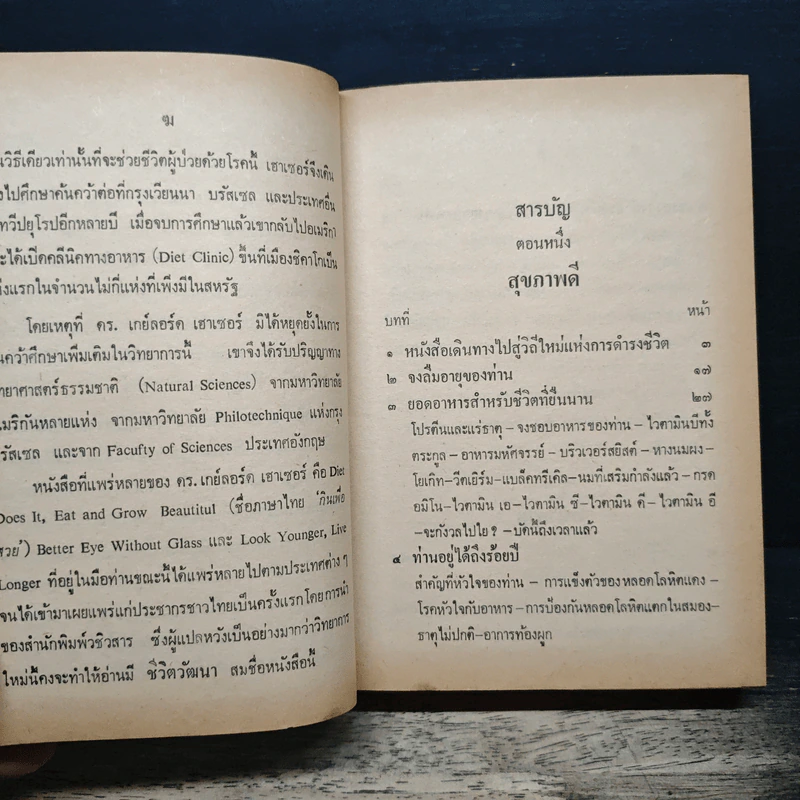 ฆ
นวิธีเดียวเท่านั้นที่จะช่วยชีวิตผู้ป่วยด้วยโรคนี้ เฮาเซอร์จึงเดิน
งไปศึกษาค้นคว้าต่อที่กรุงเวียนนา บรัสเซล และประเทศอื่น
ทวีปยุโรปอีกหลายปี เมื่อจบการศึกษาแล้วเขากลับไปอเมริกา
ะได้เปิดคลีนิคทางอาหาร (Diet Clinic) ขึ้นที่เมืองชิคาโกเป็น
แรกในจำนวนไม่กี่แห่งที่เพิ่งมีในสหรัฐ
โดยเหตุที่ ดร. เกย์ลอร์ด เฮาเซอร์ มิได้หยุดยั้งในการ
นคว้าศึกษาเพิ่มเติมในวิทยาการนี้ เขาจึงได้รับปริญญาทาง
ทยาศาสตร์ธรรมชาติ (Natural Sciences) จากมหาวิทยาลัย
เมริกันหลายแห่ง จากมหาวิทยาลัย Philotechnique แห่งกรุง
รัสเซล และจาก Facufty of Sciences ประเทศอังกฤษ
หนังสือที่แพร่หลายของ ดร. เกย์ลอร์ด เฮาเซอร์ คือ Diet
Does It, Eat and Grow Beautitul (ชื่อภาษาไทย 'กินเพื่อ
สวย') Better Eye Without Glass และ Look Younger, Live
Longer ที่อยู่ในมือท่านขณะนี้ได้แพร่หลายไปตามประเทศต่าง ๆ
จนได้เข้ามาเผยแพร่แก่ประชากรชาวไทยเป็นครั้งแรกโดยการนำ
ของสำนักพิมพ์วชิวสาร ซึ่งผู้แปลหวังเป็นอย่างมากว่าวิทยาการ
ใหม่นี้คงจะทำให้อ่านมี ชีวิตวัฒนา สมชื่อหนังสือนี้
สารบัญ
ตอนหนึ่ง
สุขภาพดี
บทที่ หน้า
๑ หนังสือเดินทางไปสู่วิถีใหม่แห่งการดำรงชีวิต ๓
๒ จงลืมอายุของท่าน ๑๗
๓ ยอดอาหารสำหรับชีวิตที่ยืนนาน ๒๗
โปรตีนและแร่ธาตุ – จงชอบอาหารของท่าน – ไวตามินบีทั้ง
ตระกูล – อาหารมหัศจรรย์ – บริวเวอร์สยิสต์ – หางนมผง–
โยเกิท–วีตเยิร์ม–แบล็คทรีเคิล–นมที่เสริมกำลังแล้ว–กรด
อมิโน–ไวตามิน เอ–ไวตามิน ซี–ไวตามิน ดี–ไวตามิน อี
–จะกังวลไปใย ? –บัดนี้ถึงเวลาแล้ว
๔ ท่านอยู่ได้ถึงร้อยปี
สำคัญที่หัวใจของท่าน – การแข็งตัวของหลอดโลหิตแดง–
โรคหัวใจกับอาหาร – การป้องกันหลอดโลหิตแตกในสมอง–
ธาตุไม่ปกติ–อาการท้องผูก